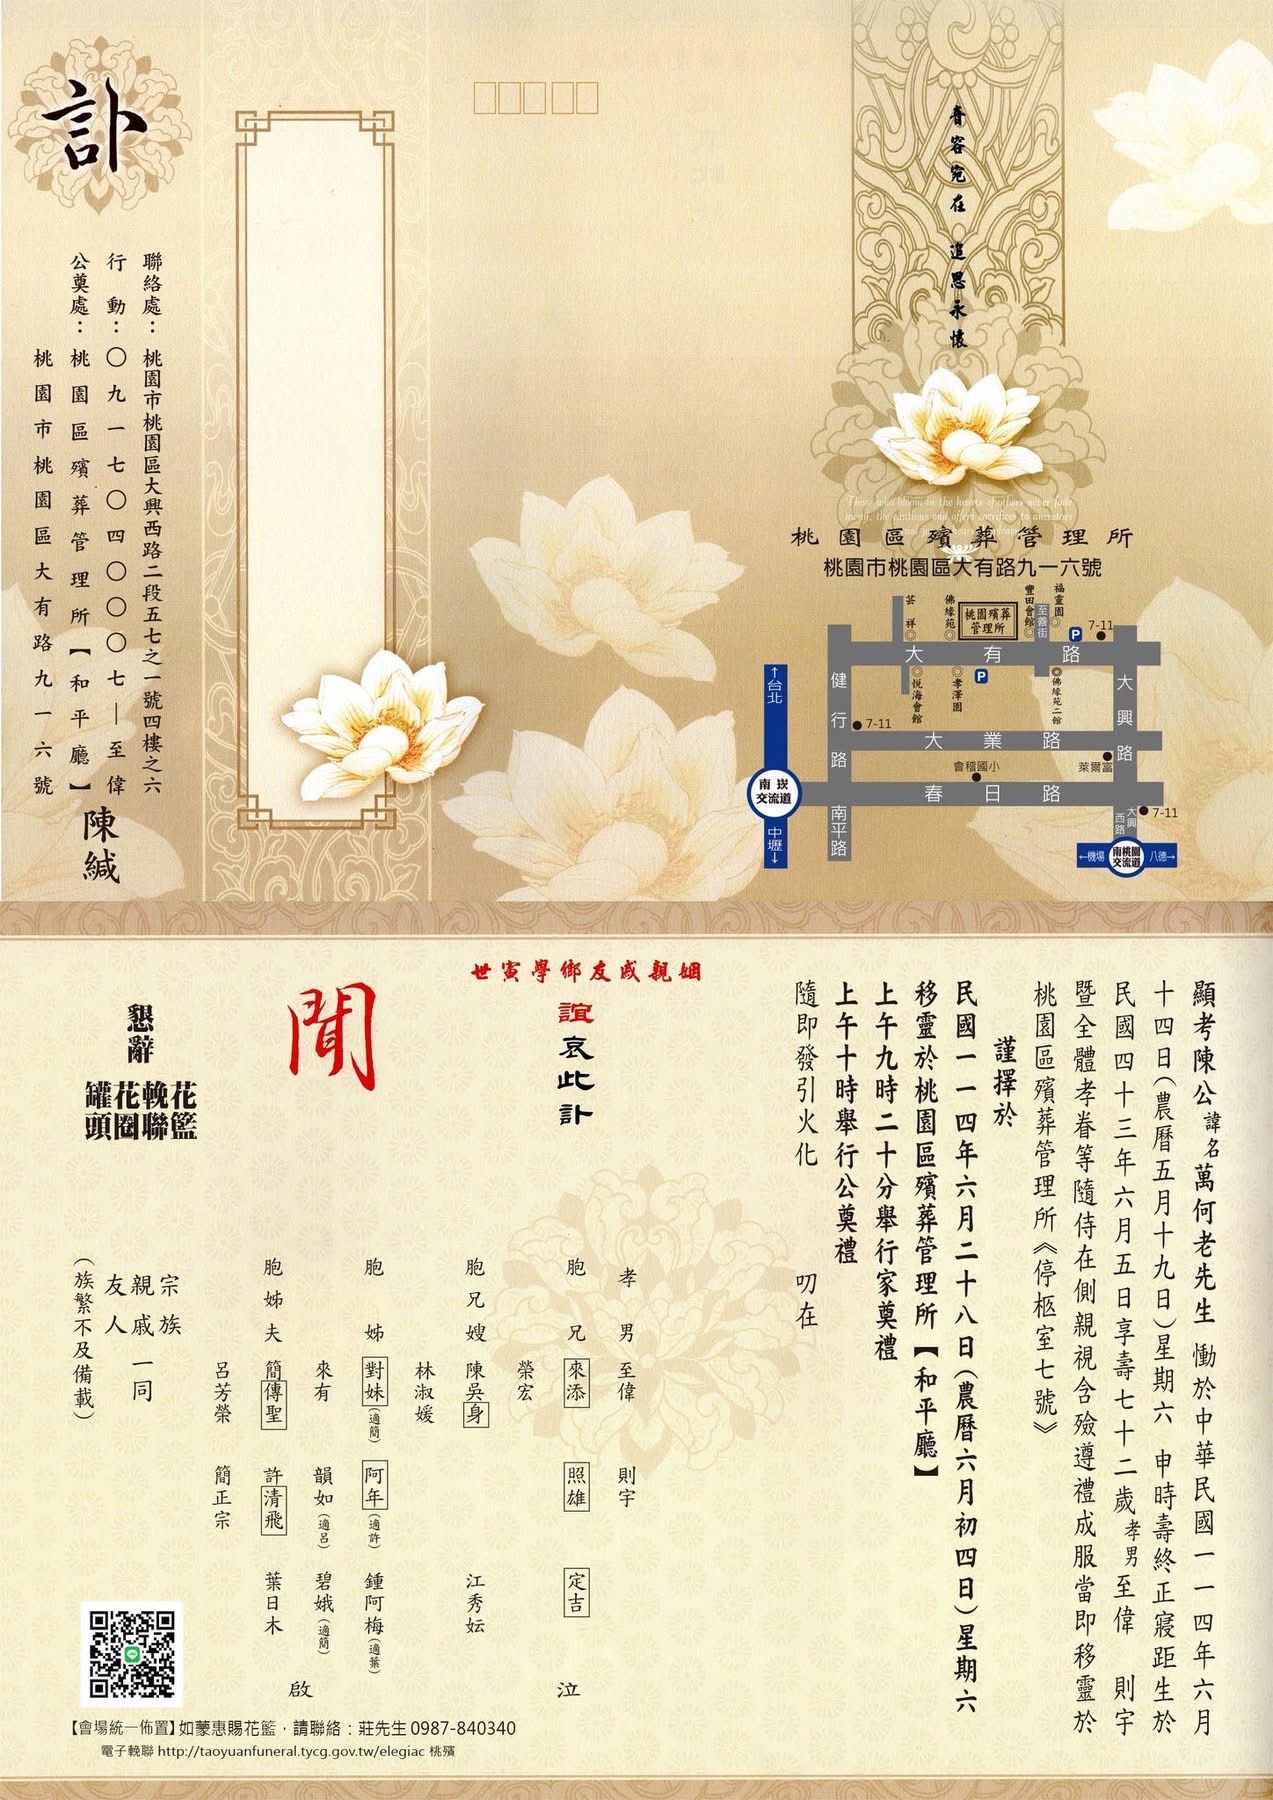 訃
聯絡處：桃園市桃園區大興西路二段五七之一號四樓之六
行動：〇九一七〇四〇〇〇七—至偉
公奠處：桃園區殯葬管理所【和平廳】
桃園市桃園區大有路九一六號
陳緘
音容宛在 追思永懷
Those who bloom in the hearts of others never fade
桃園區殯葬管理所
桃園市桃園區大有路九一六號
芸祥◎
佛緣苑◎
桃園殯葬
管理所
豐田會館◎
至善街
福靈園◎
P
7-11
大有路
◎悅海會館
◎孝澤園
P
◎佛緣苑二館
↑台北
健行路
7-11
大業路
大興路
會稽國小
萊爾富
南崁
交流道
春日路
中壢↓
南平路
大興西路
7-11
←機場
南桃園
交流道
八德→
顯考陳公諱名萬何老先生 慟於中華民國一一四年六月
十四日(農曆五月十九日)星期六 申時壽終正寢距生於
民國四十三年六月五日享壽七十二歲孝男至偉 則宇
暨全體孝眷等隨侍在側親視含殮遵禮成服當即移靈於
桃園區殯葬管理所《停柩室七號》
謹擇於
民國一一四年六月二十八日(農曆六月初四日)星期六
移靈於桃園區殯葬管理所【和平廳】
上午九時二十分舉行家奠禮
上午十時舉行公奠禮
隨即發引火化 叨在
世寅學鄉友戚親姻
誼哀此訃
聞
孝男 至偉 則宇
胞兄 來添 照雄 定吉 泣
榮宏
胞兄嫂 陳吳身 江秀妘
林淑媛
胞姊 對妹(適簡) 阿年(適許) 鍾阿梅(適葉)
來有 韻如(適呂) 碧娥(適簡) 啟
胞姊夫 簡傳聖 許清飛 葉日木
呂芳榮 簡正宗
宗族
親戚一同
友人
(族繁不及備載)
懇辭
花籃
輓聯
花圈
罐頭
【會場統一佈置】如蒙惠賜花籃，請聯絡：莊先生 0987-840340
電子輓聯 http://taoyuanfuneral.tycg.gov.tw/elegiac 桃殯